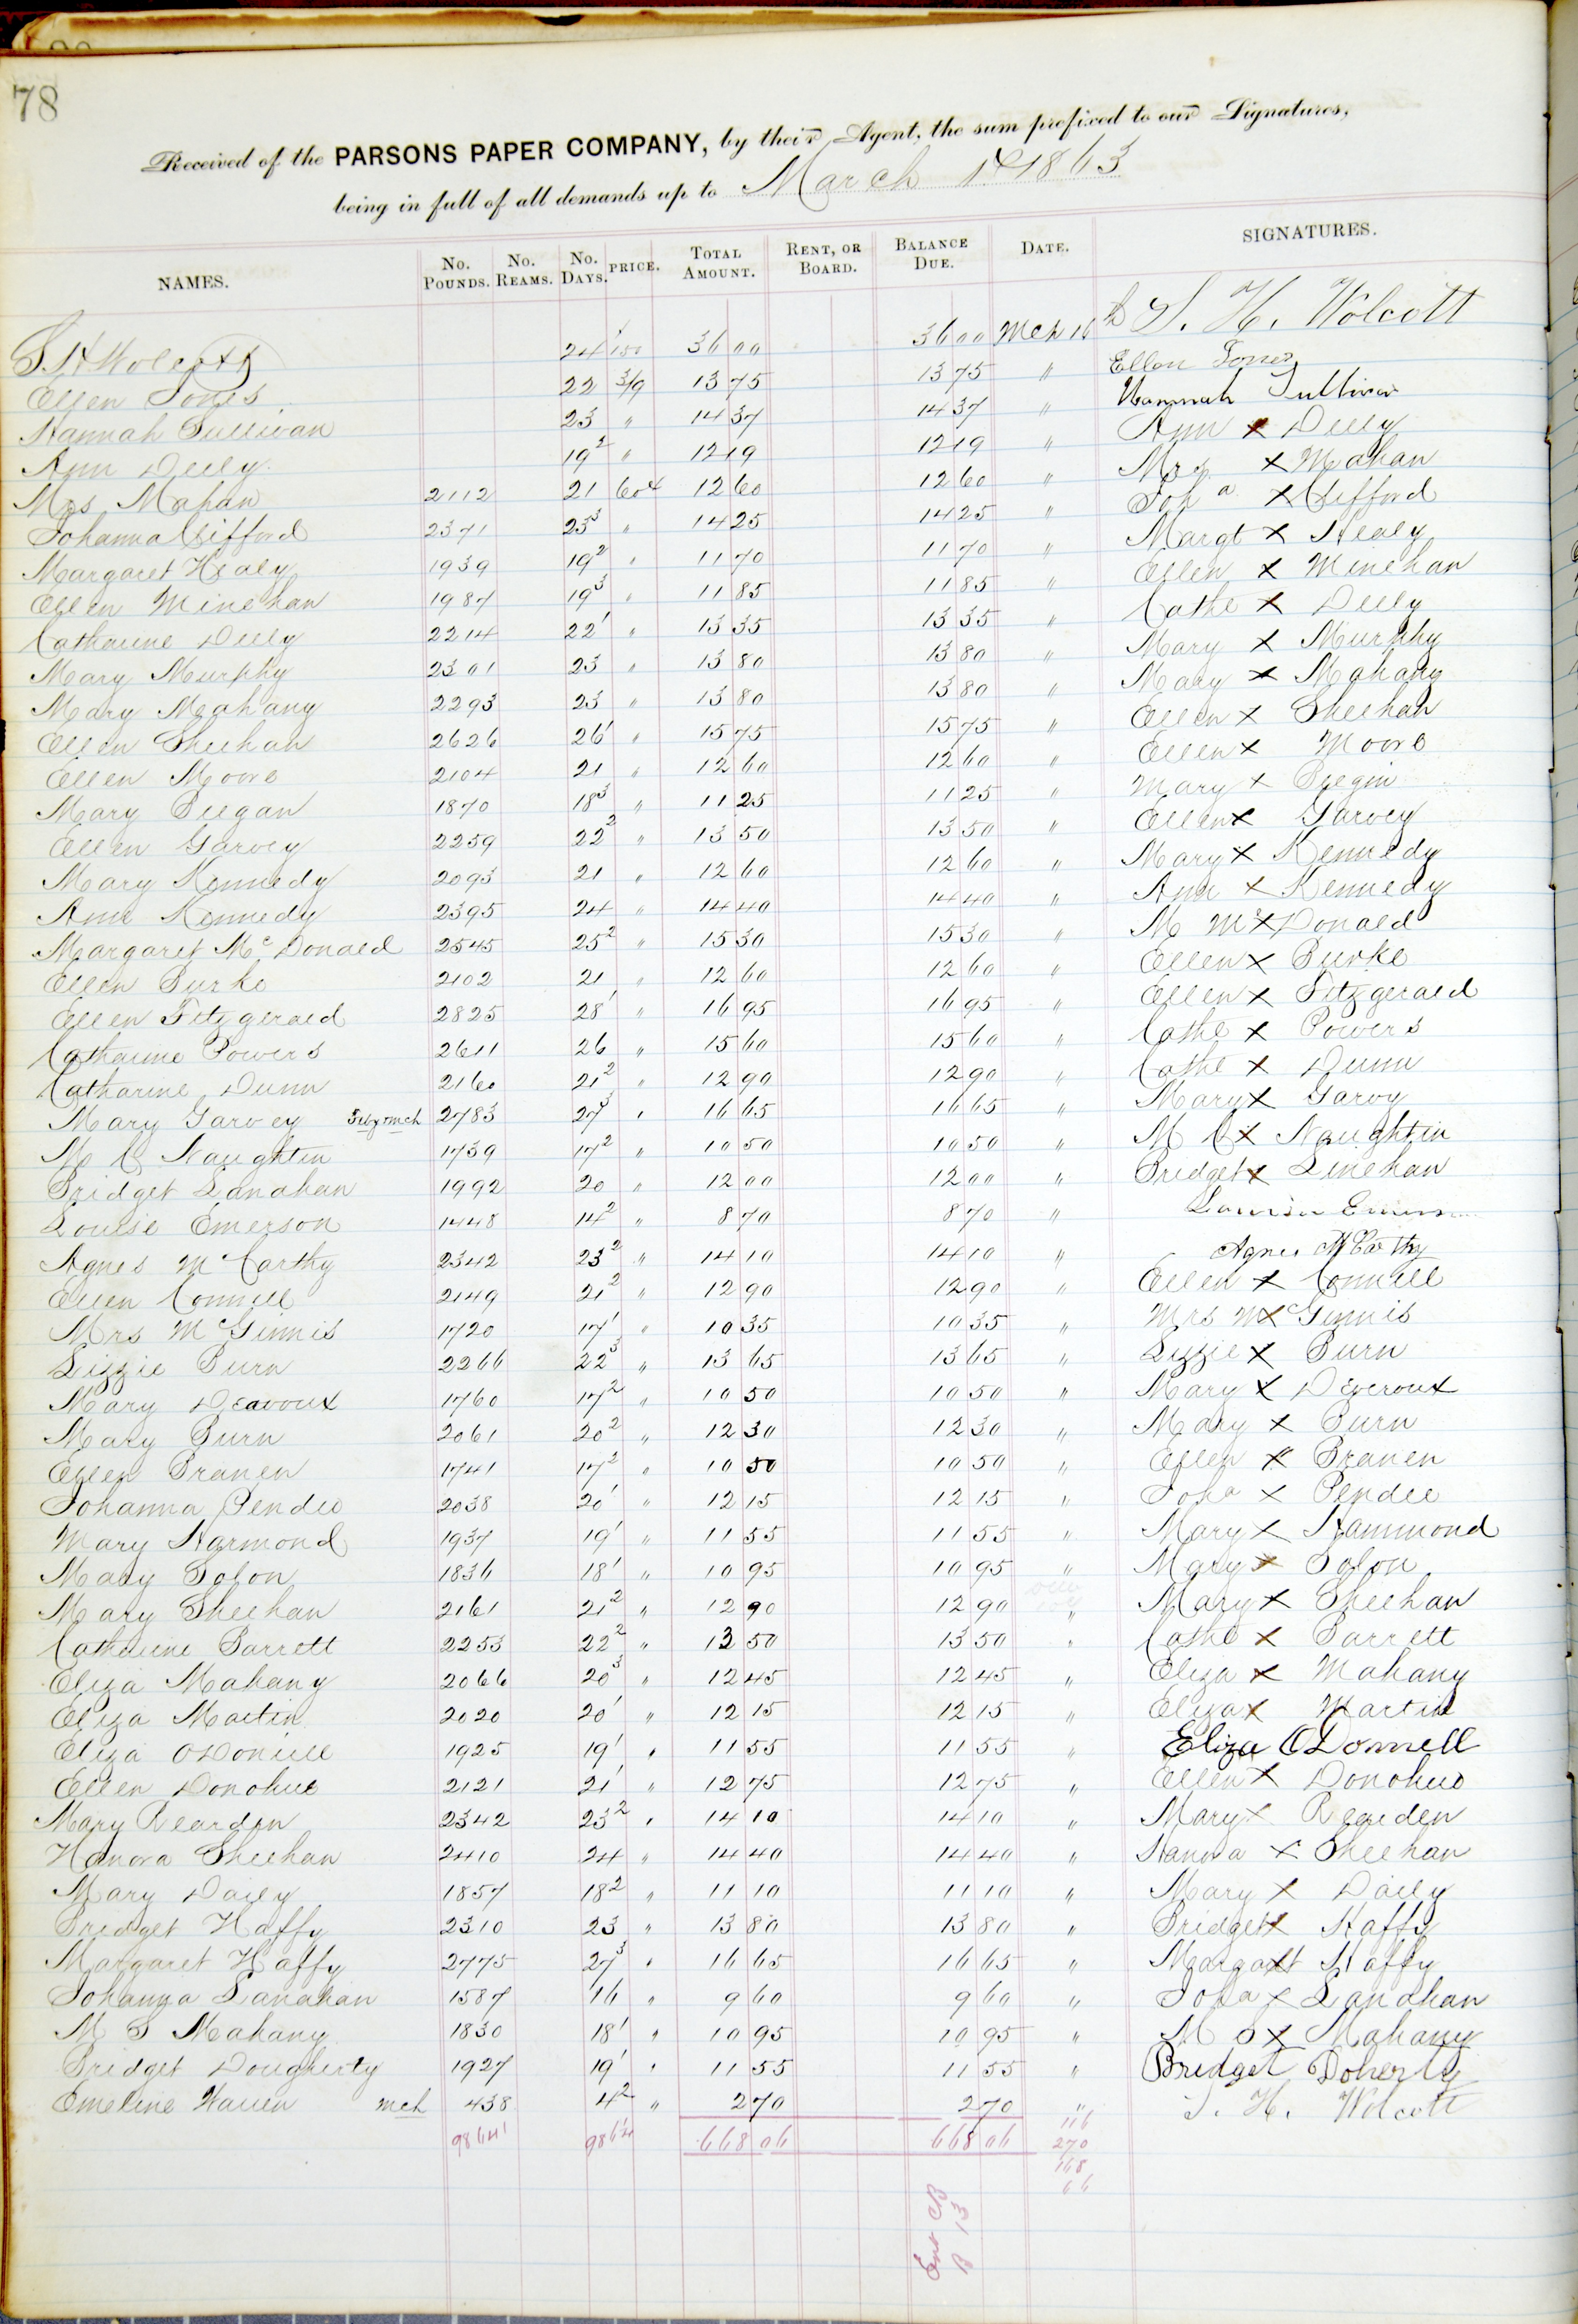 78
Received of the PARSONS PAPER COMPANY, by their Agent, the sum prefixed to our Signatures,
being in full of all demands up to March 1st 1863
NAMES. No. POUNDS. No. REAMS. No. DAYS. PRICE. TOTAL AMOUNT. RENT, OR BOARD. BALANCE DUE. DATE. SIGNATURES.
S H Wolcott 24 1 50 36 00 36 00 Mch 16 S. H. Wolcott
Ellen Jones 22 3/9 13 75 13 75 " Ellen Jones
Hannah Sullivan 23 " 14 37 14 37 " Hannah Sullivan
Ann Deely 19 2 " 12 19 12 19 " Ann x Deely
Mrs Mahan 2112 21 60 4 12 60 12 60 " Mrs x Mahan
Johanna Clifford 2371 23 3 " 14 25 14 25 " Joha x Clifford
Margaret Healy 1939 19 2 " 11 70 11 70 " Margt x Healy
Ellen Minehan 1987 19 3 " 11 85 11 85 " Ellen x Minehan
Catharine Deely 2214 22 1 " 13 35 13 35 " Cathe x Deely
Mary Murphy 2301 23 " 13 80 13 80 " Mary x Murphy
Mary Mahany 2293 23 " 13 80 13 80 " Mary x Mahany
Ellen Sheehan 2626 26 1 " 15 75 15 75 " Ellen x Sheehan
Ellen Moore 2104 21 " 12 60 12 60 " Ellen x Moore
Mary Beegan 1870 18 3 " 11 25 11 25 " Mary x Beegin
Ellen Garvey 2259 22 2 " 13 50 13 50 " Ellen x Garvey
Mary Kennedy 2093 21 " 12 60 12 60 " Mary x Kennedy
Ann Kennedy 2395 24 " 14 40 14 40 " Ann x Kennedy
Margaret McDonald 2545 25 2 " 15 30 15 30 " M Mc x Donald
Ellen Burke 2102 21 " 12 60 12 60 " Ellen x Burke
Ellen Fitzgerald 2825 28 1 " 16 95 16 95 " Ellen x Fitzgerald
Catharine Powers 2611 26 " 15 60 15 60 " Cathe x Powers
Catharine Dunn 2160 21 2 " 12 90 12 90 " Cathe x Dunn
Mary Garvey mch 2783 27 3 " 16 65 16 65 " Mary x Garvy
M C Naughtin 1739 17 2 " 10 50 10 50 " M C x Naughtin
Bridget Lanahan 1992 20 " 12 00 12 00 " Bridget x Linehan
Louise Emerson 1448 14 2 " 8 70 8 70 "
Agnes McCarthy 2342 23 2 " 14 10 14 10 " Agnes McCarthy
Ellen Connell 2149 21 2 " 12 90 12 90 " Ellen x Connell
Mrs McGinnis 1720 17 1 " 10 35 10 35 " Mrs Mc x Ginnis
Lizzie Burn 2266 22 3 " 13 65 13 65 " Lizzie x Burn
Mary Deavoux 1760 17 2 " 10 50 10 50 " Mary x Deveroux
Mary Burn 2061 20 2 " 12 30 12 30 " Mary x Burn
Ellen Branen 1741 17 2 " 10 50 10 50 " Ellen x Branen
Johanna Pendee 2038 20 1 " 12 15 12 15 " Joha x Pendee
Mary Harmond 1937 19 1 " 11 55 11 55 " Mary x Hammond
Mary Solon 1836 18 1 " 10 95 10 95 " Mary x Solon
Mary Sheehan 2161 21 2 " 12 90 12 90 " Mary x Sheehan
Catharine Barrett 2253 22 2 " 13 50 13 50 " Cathe x Barrett
Eliza Mahany 2066 20 3 " 12 45 12 45 " Eliza x Mahany
Eliza Martin 2020 20 1 " 12 15 12 15 " Eliza x Martin
Eliza ODonell 1925 19 1 " 11 55 11 55 " Eliza ODonnell
Ellen Donohue 2121 21 1 " 12 75 12 75 " Ellen x Donohue
Mary Rearden 2342 23 2 " 14 10 14 10 " Mary x Rearden
Hanora Sheehan 2410 24 " 14 40 14 40 " Hanora x Sheehan
Mary Daily 1857 18 2 " 11 10 11 10 " Mary x Daily
Bridget Haffy 2310 23 " 13 80 13 80 " Bridget x Haffy
Margaret Haffy 2775 27 3 " 16 65 16 65 " Margaret x Haffy
Johanna Lanahan 1587 16 " 9 60 9 60 " Joha x Lanahan
M S Mahany 1830 18 1 " 10 95 10 95 " M S x Mahany
Bridget Dougherty 1927 19 1 " 11 55 11 55 " Bridget Doherty
Emeline Warren mch 438 4 2 " 2 70 2 70 " S. H. Wolcott
98641 986 1/4 668 06 668 06 116
270
168
66
Ent CB
B 13